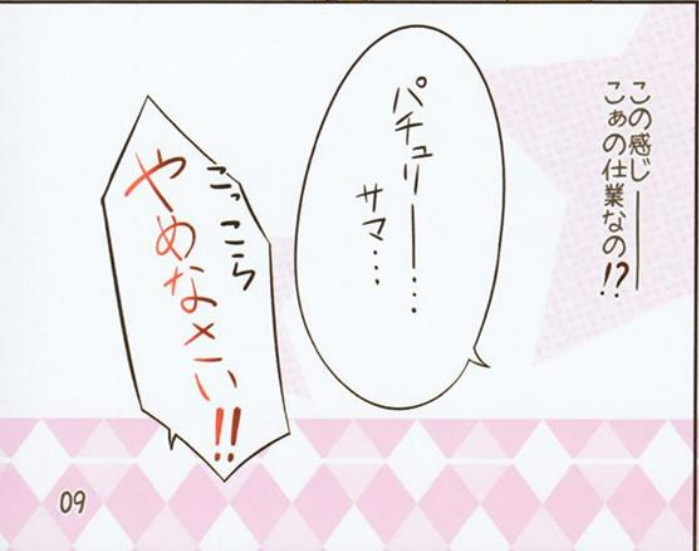 この感じ――――
こぁの仕業なの!?
パチュリ――…
サマ…
こっこら
やめなさい!!
09